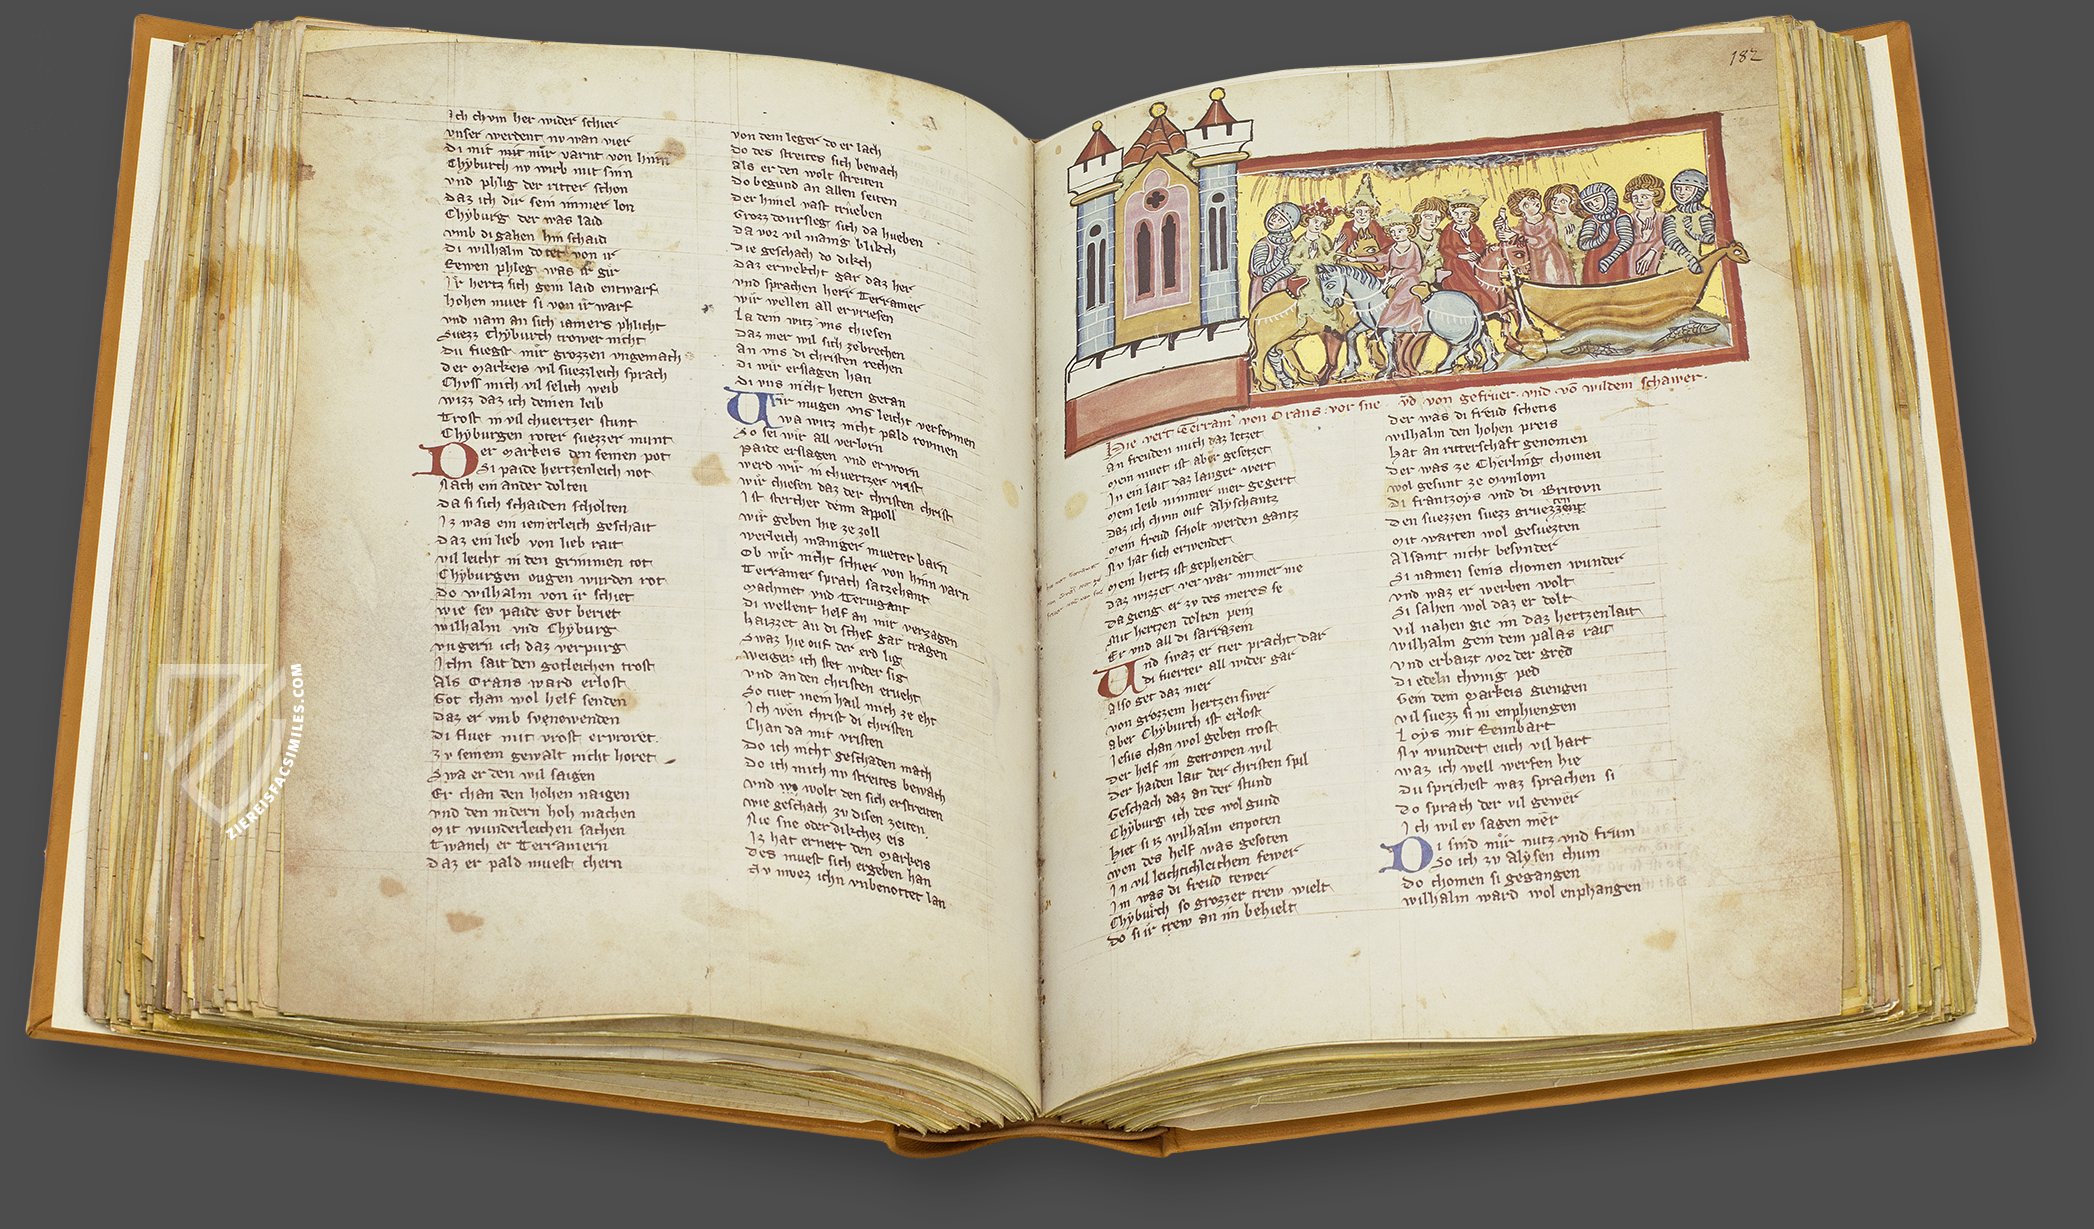 Ich chvm her wider schier
vnser werdent nv wan vier
Di mit mir varnt von hinn
Chyburch nv wirb mit sinn
vnd phlig der ritter schon
Daz ich dir sein immer lon
Chyburg der was laid
vmb di gahen hin schaid
Di wilhalm do tet von ir
Rewen phleg was ir gir
Ir hertz sich gein laid entwarf
hohen muet si von ir warf
vnd nam an sich iamers phlicht
Suezz Chyburch trower nicht
Du fuegst mir grozzen vngemach
der Markeis vil suezzleich sprach
Chuss mich vil selich weib
wizz daz ich deinen leib
Trost in vil churtzer stunt
Chyburgen roter suezzer munt
Der Markeis den seinen pot
Si paide hertzenleich not
Nach ein ander dolten
Da si sich schaiden scholten
Iz was ein iemerleich geschait
Daz ein lieb von lieb rait
vil leicht in den grimmen tot
Chyburgen ougen wurden rot
Do wilhalm von ir schiet
wie sev paide got beriet
wilhalm vnd Chyburg
vngern ich daz verpurg
Ichn sait den gotleichen trost
Als Orans ward erlost
Got chan wol helf senden
Daz er vmb svenowenden
Di fluet mit vrost ervroret
zv seinem gewalt nicht horet
Swa er den wil saigen
Er chan den hohen naigen
vnd den nidern hoh machen
Mit wunderleichen sachen
Twanch er Terramern
Daz er pald muest chern
von dem leger do er lach
Do des streites sich bewach
Als er den wolt streiten
Do begund an allen seiten
Der himel vast trueben
Grozz doursleg sich da hueben
Da vor vil manig blikch
Die geschach do dikch
Daz erwekcht gar daz her
vnd sprachen herr Terramer
wir wellen all ervriesen
La dem witz vns chiesen
Daz mer wil sich zebrechen
An vns di christen rechen
Di wir erslagen han
Di vns nicht heten getan
Wir mugen vns leicht versovmen
wa wirz nicht pald rovmen
So sei wir all verlorn
Paide erslagen vnd ervrorn
werd wir in chuertzer vrist
wir chiesen daz der christen christ
Ist stercher denn appoll
wir geben hie ze zoll
werleich maniger mueter barn
Ob wir nicht schier von hinn varn
Terramer sprach satzehant
Machmet vnd Terwigant
Di wellent helf an mir verzagen
haizzet an di schef gar tragen
Swaz hie ouf der erd lig
weiger ich stet wider sig
vnd an den christen erueht
So tuet mein hail mich ze eht
Ich wen christ di christen
Chan da mit vristen
Do ich nicht geschaden mach
Do ich mich nv streites bewach
vnd wo wolt den sich erstreiten
wie geschach zv disen zeiten
Nie sne oder dikchez eis
Iz hat ernert den Markeis
Des muest sich ergeben han
Nv muez ichn vnbenottet lan
182
Hie vert Terram von Orans vor sne vd von gefruer vnd vo wildem schawer
An freuden mich daz letzet
Mein muet ist aber gesetzet
In ein lait daz langer wert
Mein leib nimmer mer gegert
Daz ich chvm ouf Alyschantz
Mein freud scholt werden gantz
Nv hat sich erwendet
Mein hertz ist gephendet
Daz wizzet ver war immer me
Da gieng er zv des meres se
Mit hertzen dolten pein
Er vnd all di sarrazein
Und swaz er tier pracht dar
di fuerter all wider gar
Also get daz mer
von grozzem hertzen swer
Aber Chyburch ist erlost
Jesus chan wol geben trost
Der helf im getrowen wil
Der haiden lait der christen spil
Geschach daz an der stund
Chyburg ich des wol gund
hiet si iz wilhalm enpoten
wen des helf was gesoten
In vil leichtichleichem fewer
Im was di freud tewer
Chyburch so grozzer trew wielt
do si ir trew an im behielt
Der was di freud schetis
wilhalm den hohen preis
hat an ritterschaft genomen
Der was ze Cherling chomen
wol gesunt ze Mvnlovn
Di frantzoys vnd di Britovn
Den suezzen suezz gruezzten
Mit warten wol gesuezten
Alsamt nicht besvnder
Si namen seins chomen wunder
vnd waz er werben wolt
Si sahen wol daz er dolt
vil nahen gie im daz hertzenlait
wilhalm gein dem palas rait
vnd erbaizt vor der gred
Di edeln chvnig ped
Gein dem Markeis giengen
vil suezz si in enphiengen
Loys mit Reinbart
Nv wundert euch vil hart
waz ich well werfen hie
Du sprichest waz sprachen si
Do sprach der vil gewer
Ich wil ev sagen mer
Di sind mir nutz vnd frum
So ich zv Alysen chum
Do chomen si gegangen
wilhalm ward wol enphangen
ZIEREISFACSIMILES.COM